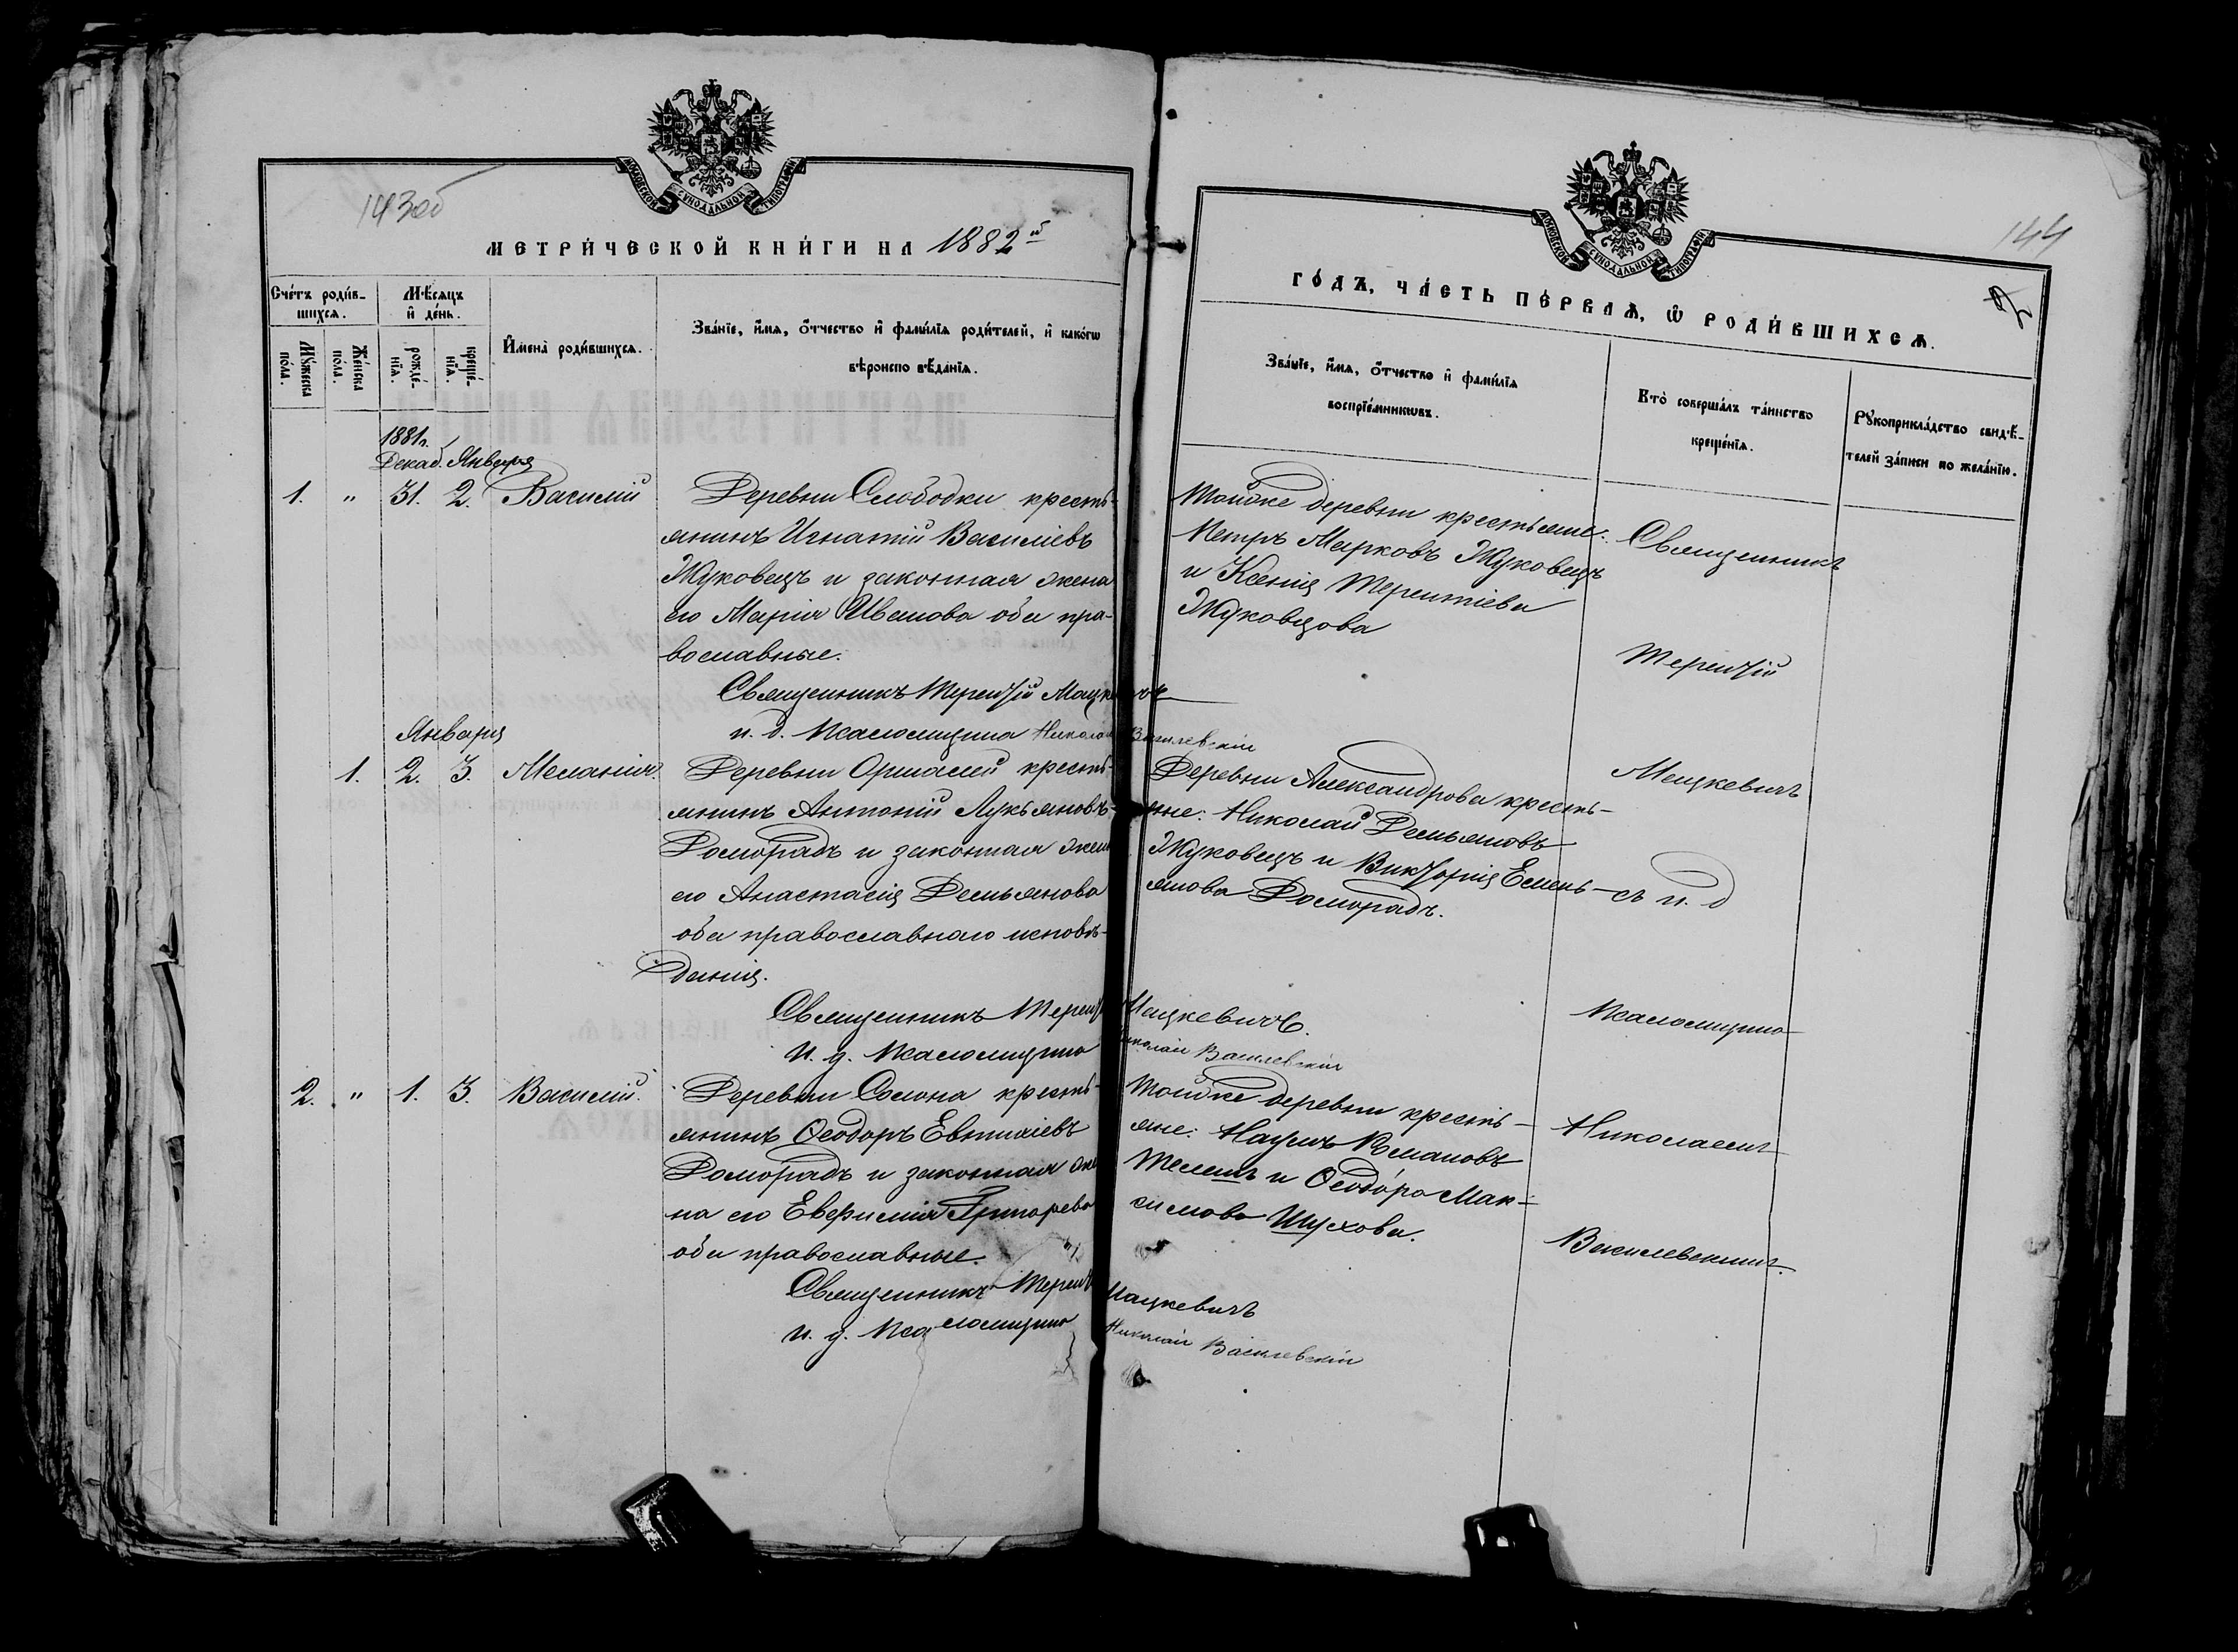 143об
МОСКОВСКОЙ СУНОДАЛЬНОЙ ТИПОГРАФІИ
МЕТРИ́ЧЕСКОЙ КНИ́ГИ НА 1882й
Сче́тъ роди́в-
шихся.
Мѣ́сяцъ
и҆ де́нь.
Мꙋ́жеска
по́ла.
Же́нска
по́ла.
рожде́-
нїѧ.
креще́-
нїѧ.
И҆мена̀ роди́вшихсѧ.
Зва́нїе, и҆́мѧ, ѻ҆́тчество и҆ фами́лїѧ роди́телей, и҆ како́гѡ
вѣроисповѣ́данїѧ.
1881г.
Декаб. Января
1. " 31. 2. Василій
Деревни Слободки кресть-
янинъ Игнатій Василіевъ
Жуковецъ и законная жена
его Марія Иванова оба пра-
вославные.
Священникъ Терентій Мацкевичъ
и. д. Псаломщика Николай Василевскій
Января
1. 2. 3. Меланія.
Деревни Ормалей кресть-
янинъ Антоній Лукьяновъ
Доморадъ и законная жена
его Анастасія Демьянова
оба православнаго исповѣ-
данія.
Священникъ Терентій Мацкевичъ.
И. д. Псаломщика Николай Василевскій
2. " 1. 3. Василій.
Деревни Солона кресть-
янинъ Ѳеодоръ Евтихіевъ
Доморадъ и законная же
на его Евфимія Григорева
оба православные.
Священникъ Терентій Мацкевичъ
И. д. Псаломщика Николай Василевскій
144
МОСКОВСКОЙ СУНОДАЛЬНОЙ ТИПОГРАФІИ
ГО́ДЪ, ЧА́СТЬ ПЕ́РВАѦ, Ѡ҆ РОДИ́ВШИХСѦ.
Зва́нїе, и҆́мѧ, ѻ҆́тчество и҆ фами́лїѧ
воспрїе́мникѡвъ.
Кто̀ соверша́лъ та́инство
креще́нїѧ.
Рꙋкоприкла́дство свидѣ́-
телей за́писи по жела́нїю.
Тойже деревни крестьяне:
Петръ Марковъ Жуковецъ
и Ксенія Терентіева
Жуковцова
Деревни Александрова кресть-
яне: Николай Демьяновъ
Жуковецъ и Викторія Емель-
янова Доморадъ.
Тойже деревни кресть-
яне: Наумъ Романовъ
Телешъ и Ѳеодора Мак-
симова Шухова.
Священникъ
Терентій
Мацкевичъ
съ и. д
Псаломщика
Николаемъ
Василевскимъ.